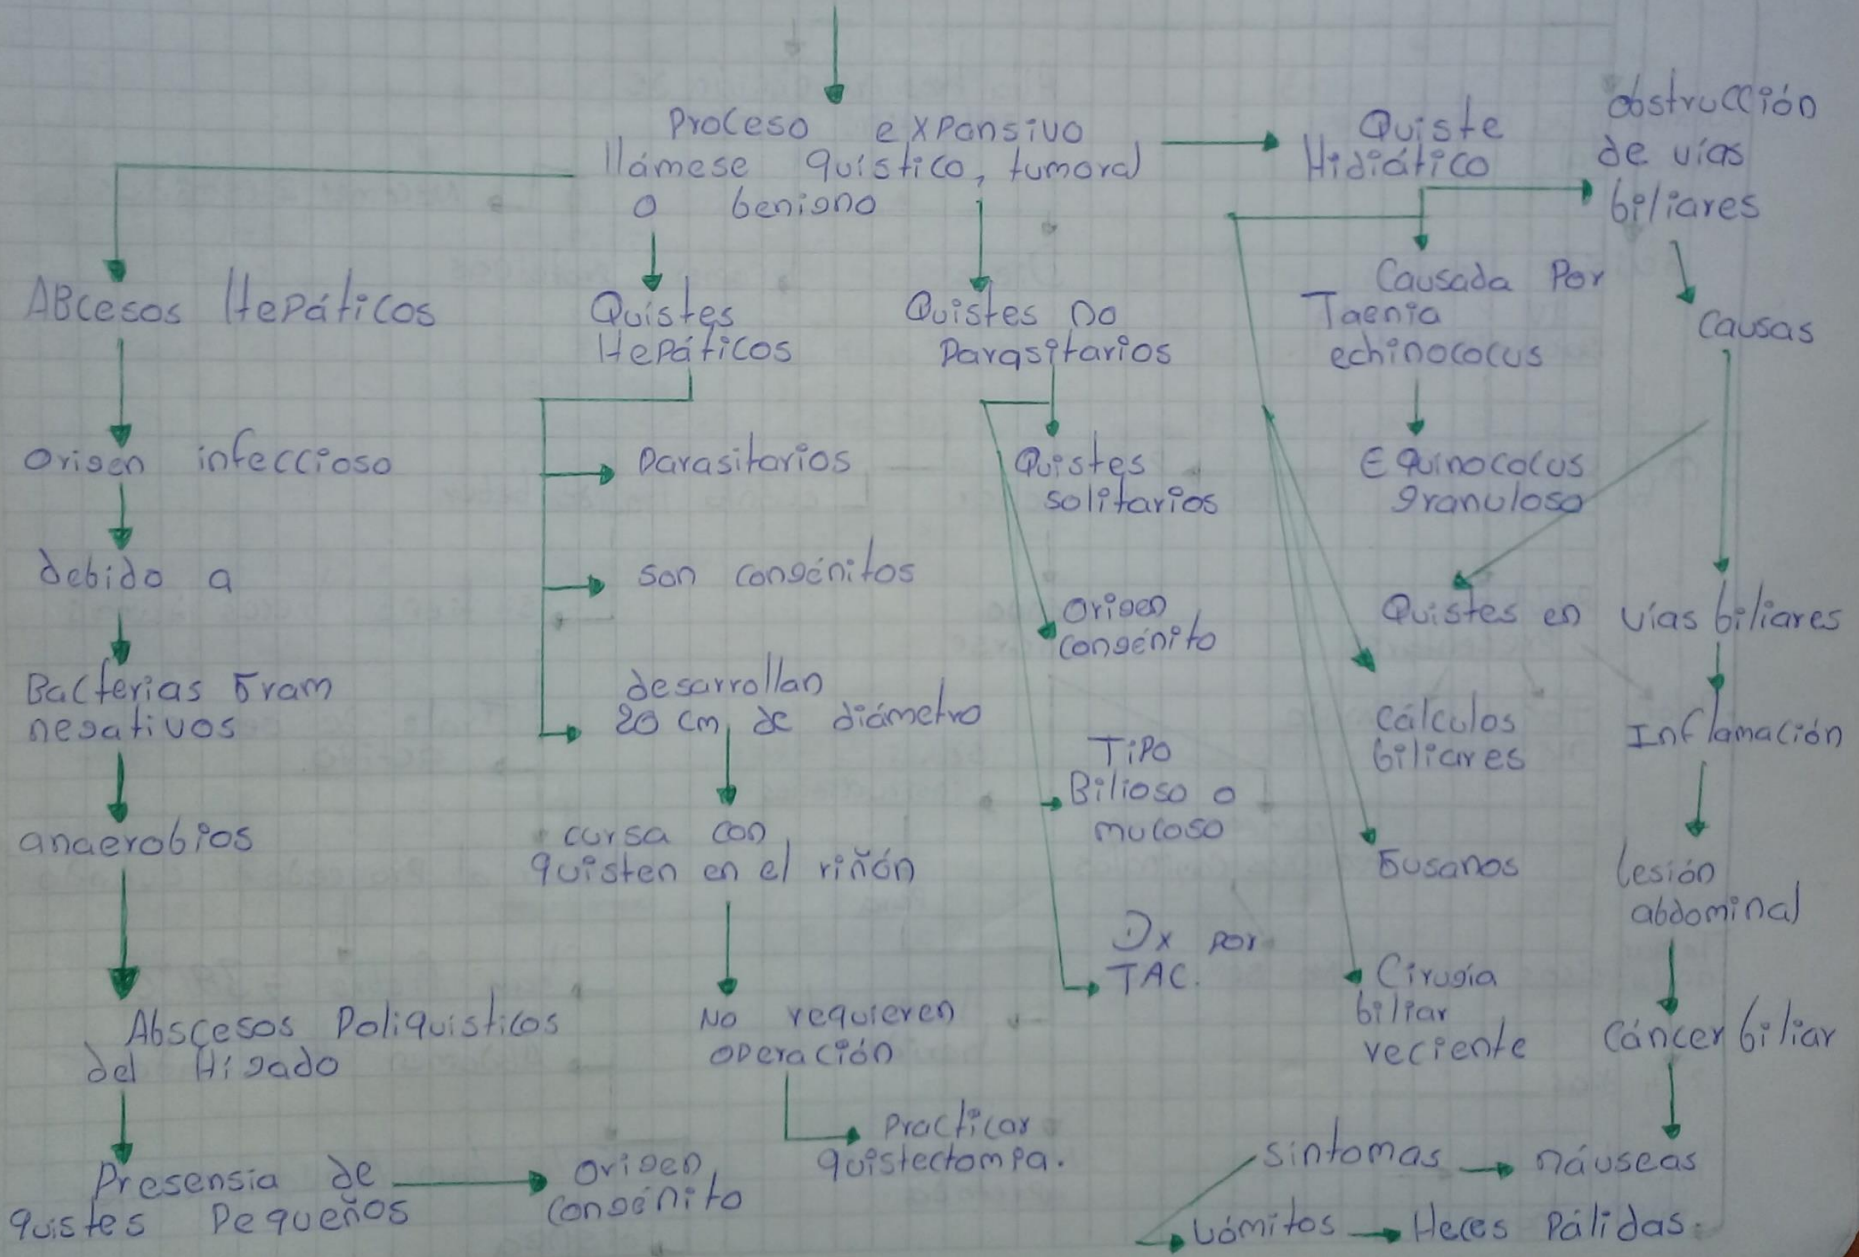 Proceso expansivo
llámese quístico, tumoral
o benigno
Quiste
Hidiático
obstrucción
de vías
biliares
ABcesos Hepáticos
Origen infeccioso
debido a
Bacterias Gram
negativos
anaerobios
Abscesos Poliquisticos
del Hígado
Presensia de
quistes Pequeños
origen
congénito
Quístes
Hepáticos
Parasitarios
son congénitos
desarrollan
20 cm de diámetro
cursa con
quisten en el riñón
No requieren
operación
Practicar
quistectomía.
Quistes no
Parasitarios
Quistes
solitarios
origen
congénito
Tipo
Bilioso o
mucoso
Dx por
TAC.
Causada Por
Taenia
echinococus
Equinococus
granuloso
cálculos
biliares
Gusanos
Cirugía
biliar
reciente
Causas
Quistes en vías biliares
Inflamación
lesión
abdominal
Cáncer biliar
síntomas
náuseas
vómitos
Heces Pálidas.